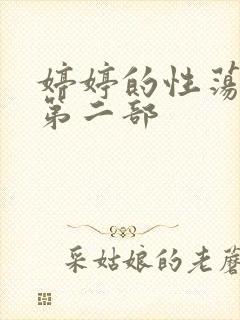 婷婷的性荡
第二部
采姑娘的老蘑